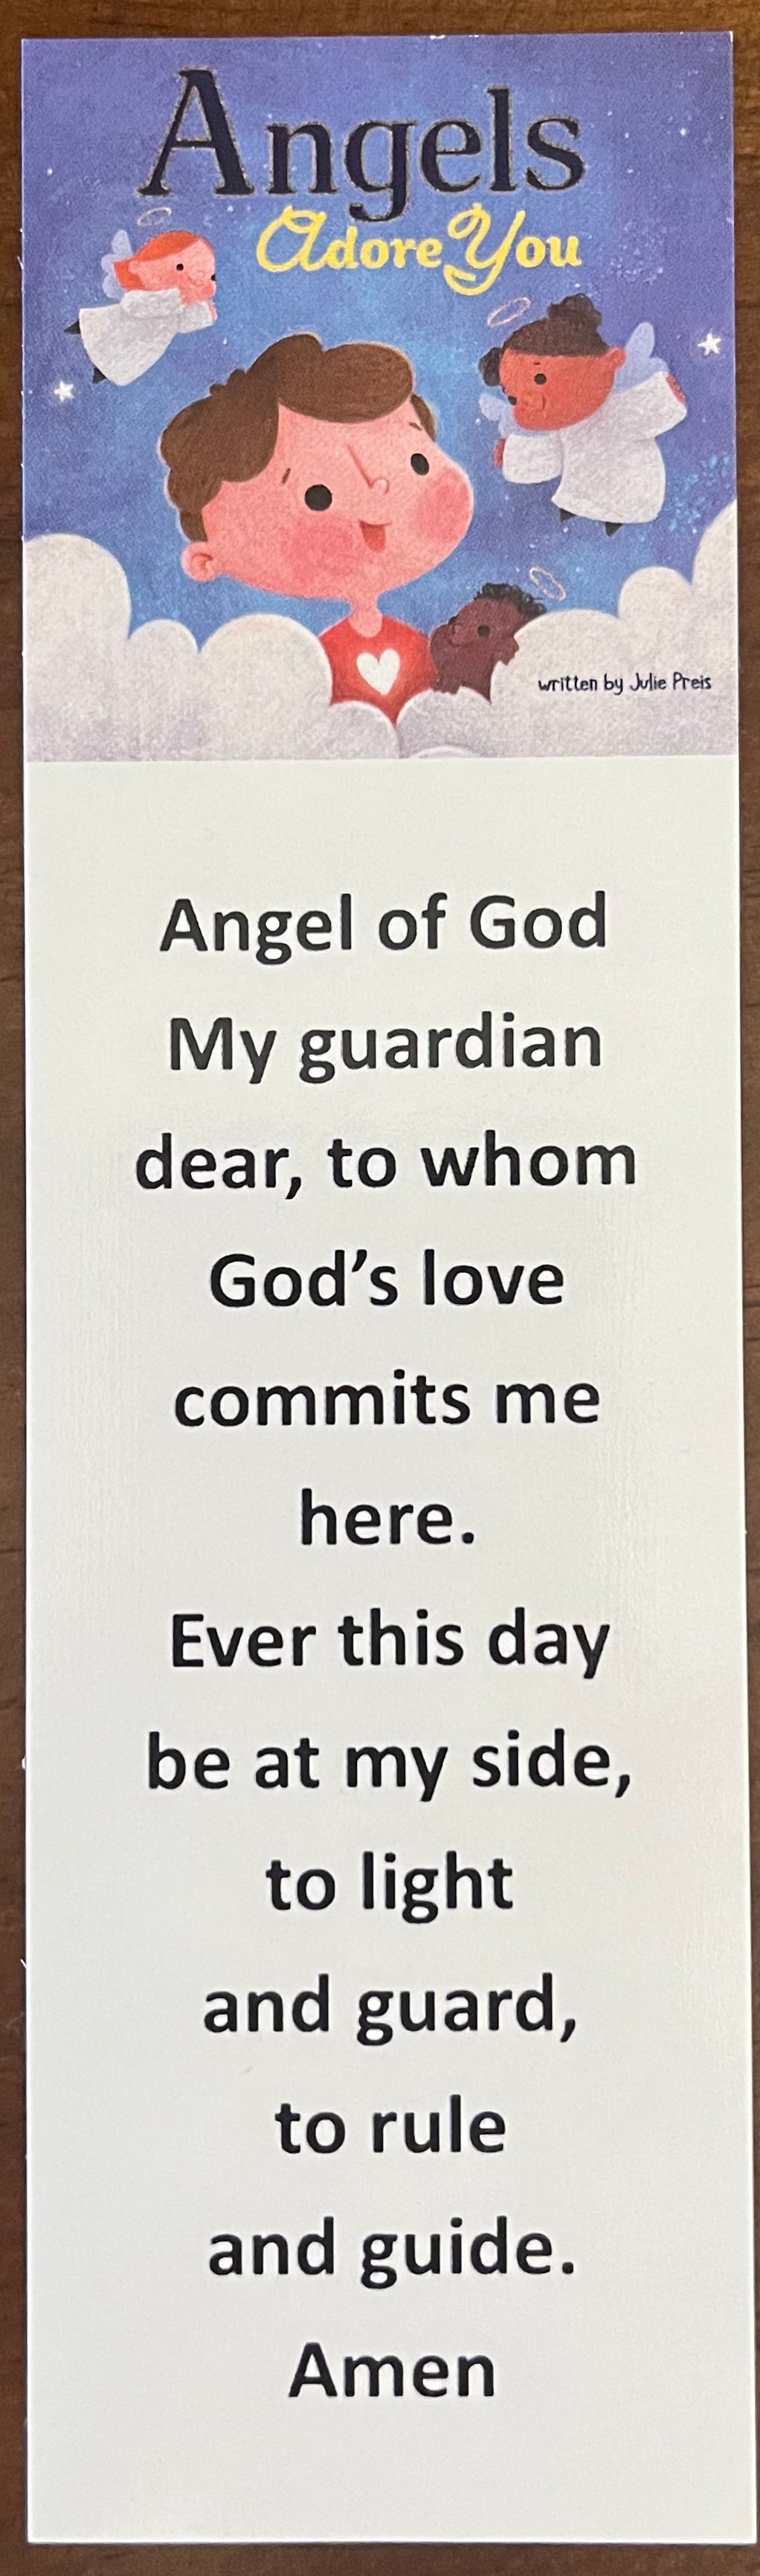 Angels
Adore You
written by Julie Preis
Angel of God
My guardian
dear, to whom
God’s love
commits me
here.
Ever this day
be at my side,
to light
and guard,
to rule
and guide.
Amen